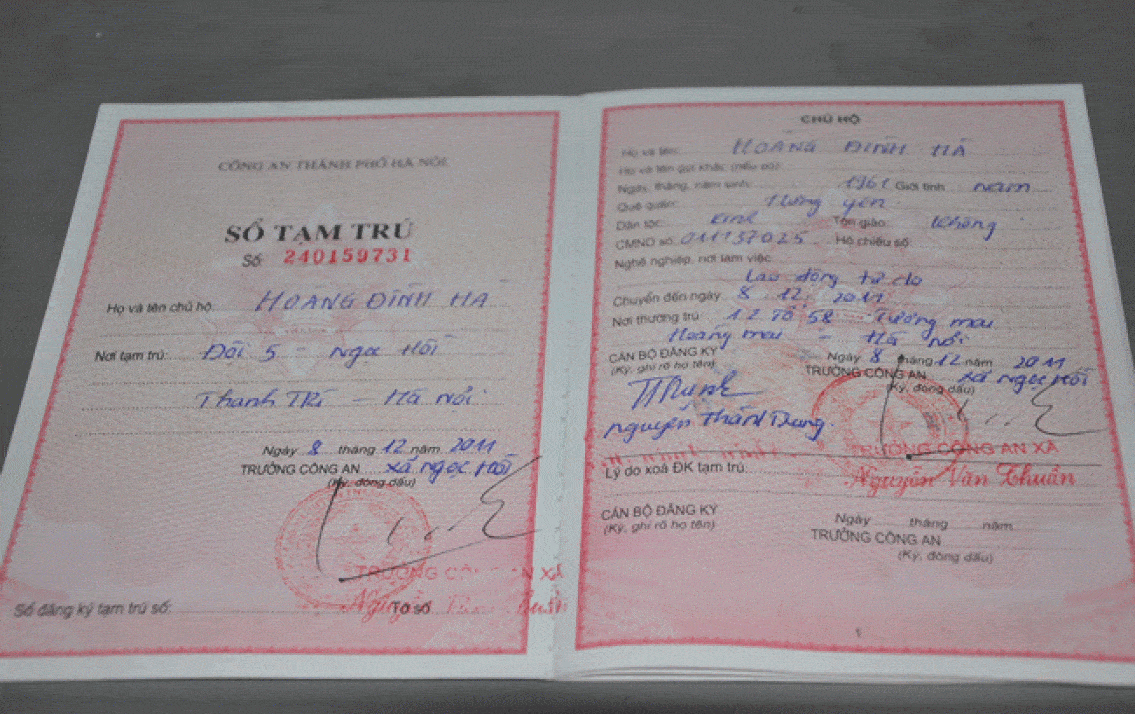 CÔNG AN THÀNH PHỐ HÀ NỘI
SỔ TẠM TRÚ
Số: 240159731
Họ và tên chủ hộ: HOÀNG ĐÌNH HÀ
Nơi tạm trú: Đội 5 - Ngọc Hồi
Thanh Trì - Hà Nội
Ngày 8 tháng 12 năm 2011
TRƯỞNG CÔNG AN xã Ngọc Hồi
(Ký, đóng dấu)
TRƯỞNG CÔNG AN XÃ
Nguyễn
Sổ đăng ký tạm trú số: Tờ số
CHỦ HỘ
Họ và tên: HOÀNG ĐÌNH HÀ
Họ và tên gọi khác (nếu có):
Ngày, tháng, năm sinh: 1961 Giới tính: nam
Quê quán: Hưng Yên
Dân tộc: Kinh Tôn giáo: Không
CMND số: 011137025 Hộ chiếu số:
Nghề nghiệp, nơi làm việc:
Lao động tự do
Chuyển đến ngày 8.12.2011
Nơi thường trú: 12 Tổ 58 - Tương mai
Hoàng mai - Hà Nội
CÁN BỘ ĐĂNG KÝ
(Ký, ghi rõ họ tên)
Ngày 8 tháng 12 năm 2011
TRƯỞNG CÔNG AN xã Ngọc Hồi
(Ký, đóng dấu)
Nguyễn Thành Trung
TRƯỞNG CÔNG AN XÃ
Nguyễn Văn Thuấn
Lý do xoá ĐK tạm trú:
CÁN BỘ ĐĂNG KÝ
(Ký, ghi rõ họ tên)
Ngày tháng năm
TRƯỞNG CÔNG AN
(Ký, đóng dấu)
1